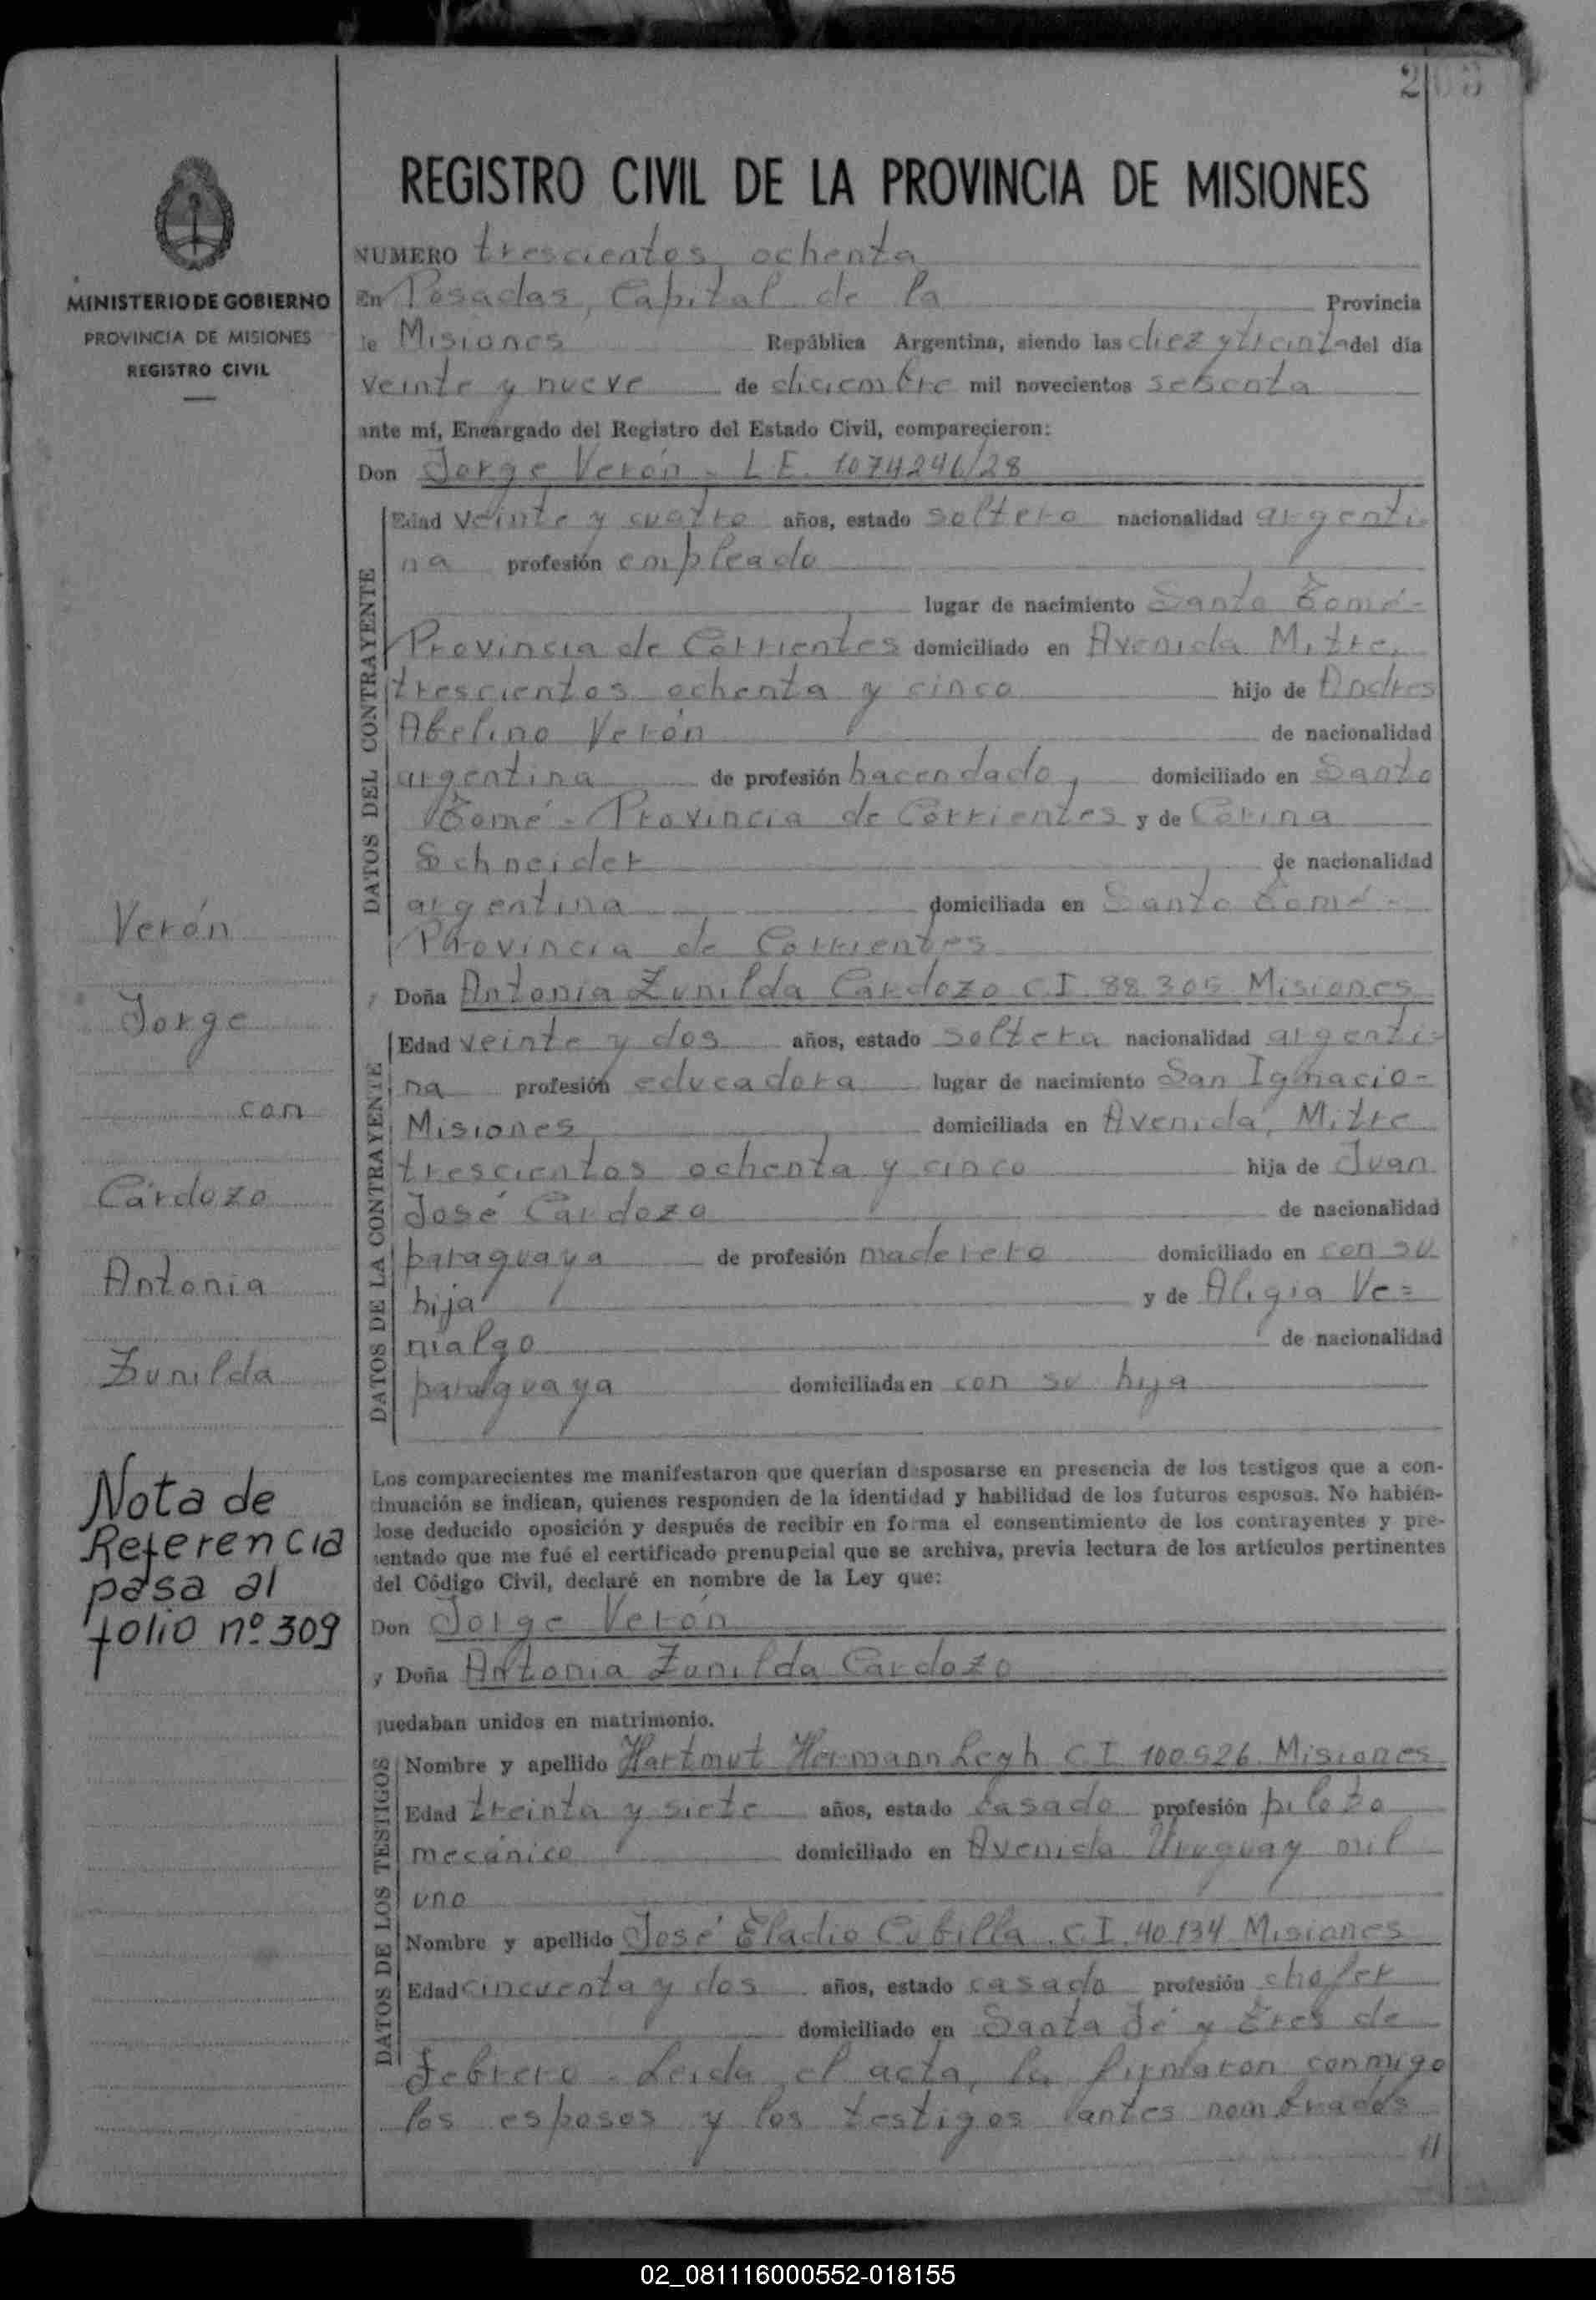 REGISTRO CIVIL DE LA PROVINCIA DE MISIONES
MINISTERIO DE GOBIERNO
PROVINCIA DE MISIONES
REGISTRO CIVIL
NUMERO trescientos ochenta
En Posadas, Capital de la Provincia
de Misiones República Argentina, siendo las diez y treinta del día
veinte y nueve de diciembre mil novecientos sesenta
ante mí, Encargado del Registro del Estado Civil, comparecieron:
Don Jorge Verón - L E. 1074246/28
DATOS DEL CONTRAYENTE
Edad veinte y cuatro años, estado soltero nacionalidad argenti-
na profesión empleado
lugar de nacimiento Santo Tomé-
Provincia de Corrientes domiciliado en Avenida Mitre
trescientos ochenta y cinco hijo de Andres
Abelino Verón de nacionalidad
argentina de profesión hacendado, domiciliado en Santo
Tomé - Provincia de Corrientes y de Corina
Schneider de nacionalidad
argentina domiciliada en Santo Tomé -
Provincia de Corrientes
y Doña Antonia Zunilda Cardozo C.I. 88.305 Misiones
DATOS DE LA CONTRAYENTE
Edad veinte y dos años, estado soltera nacionalidad argenti-
na profesión educadora lugar de nacimiento San Ignacio-
Misiones domiciliada en Avenida Mitre
trescientos ochenta y cinco hija de Juan
José Cardozo de nacionalidad
paraguaya de profesión maderero domiciliado en con su
hija y de Aligia Ve=
nialgo de nacionalidad
paraguaya domiciliada en con su hija
Los comparecientes me manifestaron que querían desposarse en presencia de los testigos que a con-
tinuación se indican, quienes responden de la identidad y habilidad de los futuros esposos. No habién-
dose deducido oposición y después de recibir en forma el consentimiento de los contrayentes y pre-
sentado que me fué el certificado prenupcial que se archiva, previa lectura de los artículos pertinentes
del Código Civil, declaré en nombre de la Ley que:
Don Jorge Verón
y Doña Antonia Zunilda Cardozo
quedaban unidos en matrimonio.
DATOS DE LOS TESTIGOS
Nombre y apellido Hartmut Hermann Legh C.I. 100.526 Misiones
Edad treinta y siete años, estado casado profesión piloto
mecánico domiciliado en Avenida Uruguay mil
uno
Nombre y apellido José Eladio Cubilla. C.I. 40.134 Misiones
Edad cincuenta y dos años, estado casado profesión chofer
domiciliado en Santa Fé y Tres de
Febrero - Leida el acta, la firmaron conmigo
los esposos y los testigos antes nombrados
//
Verón
Jorge
con
Cardozo
Antonia
Zunilda
Nota de
Referencia
pasa al
folio nº 309
02_081116000552-018155